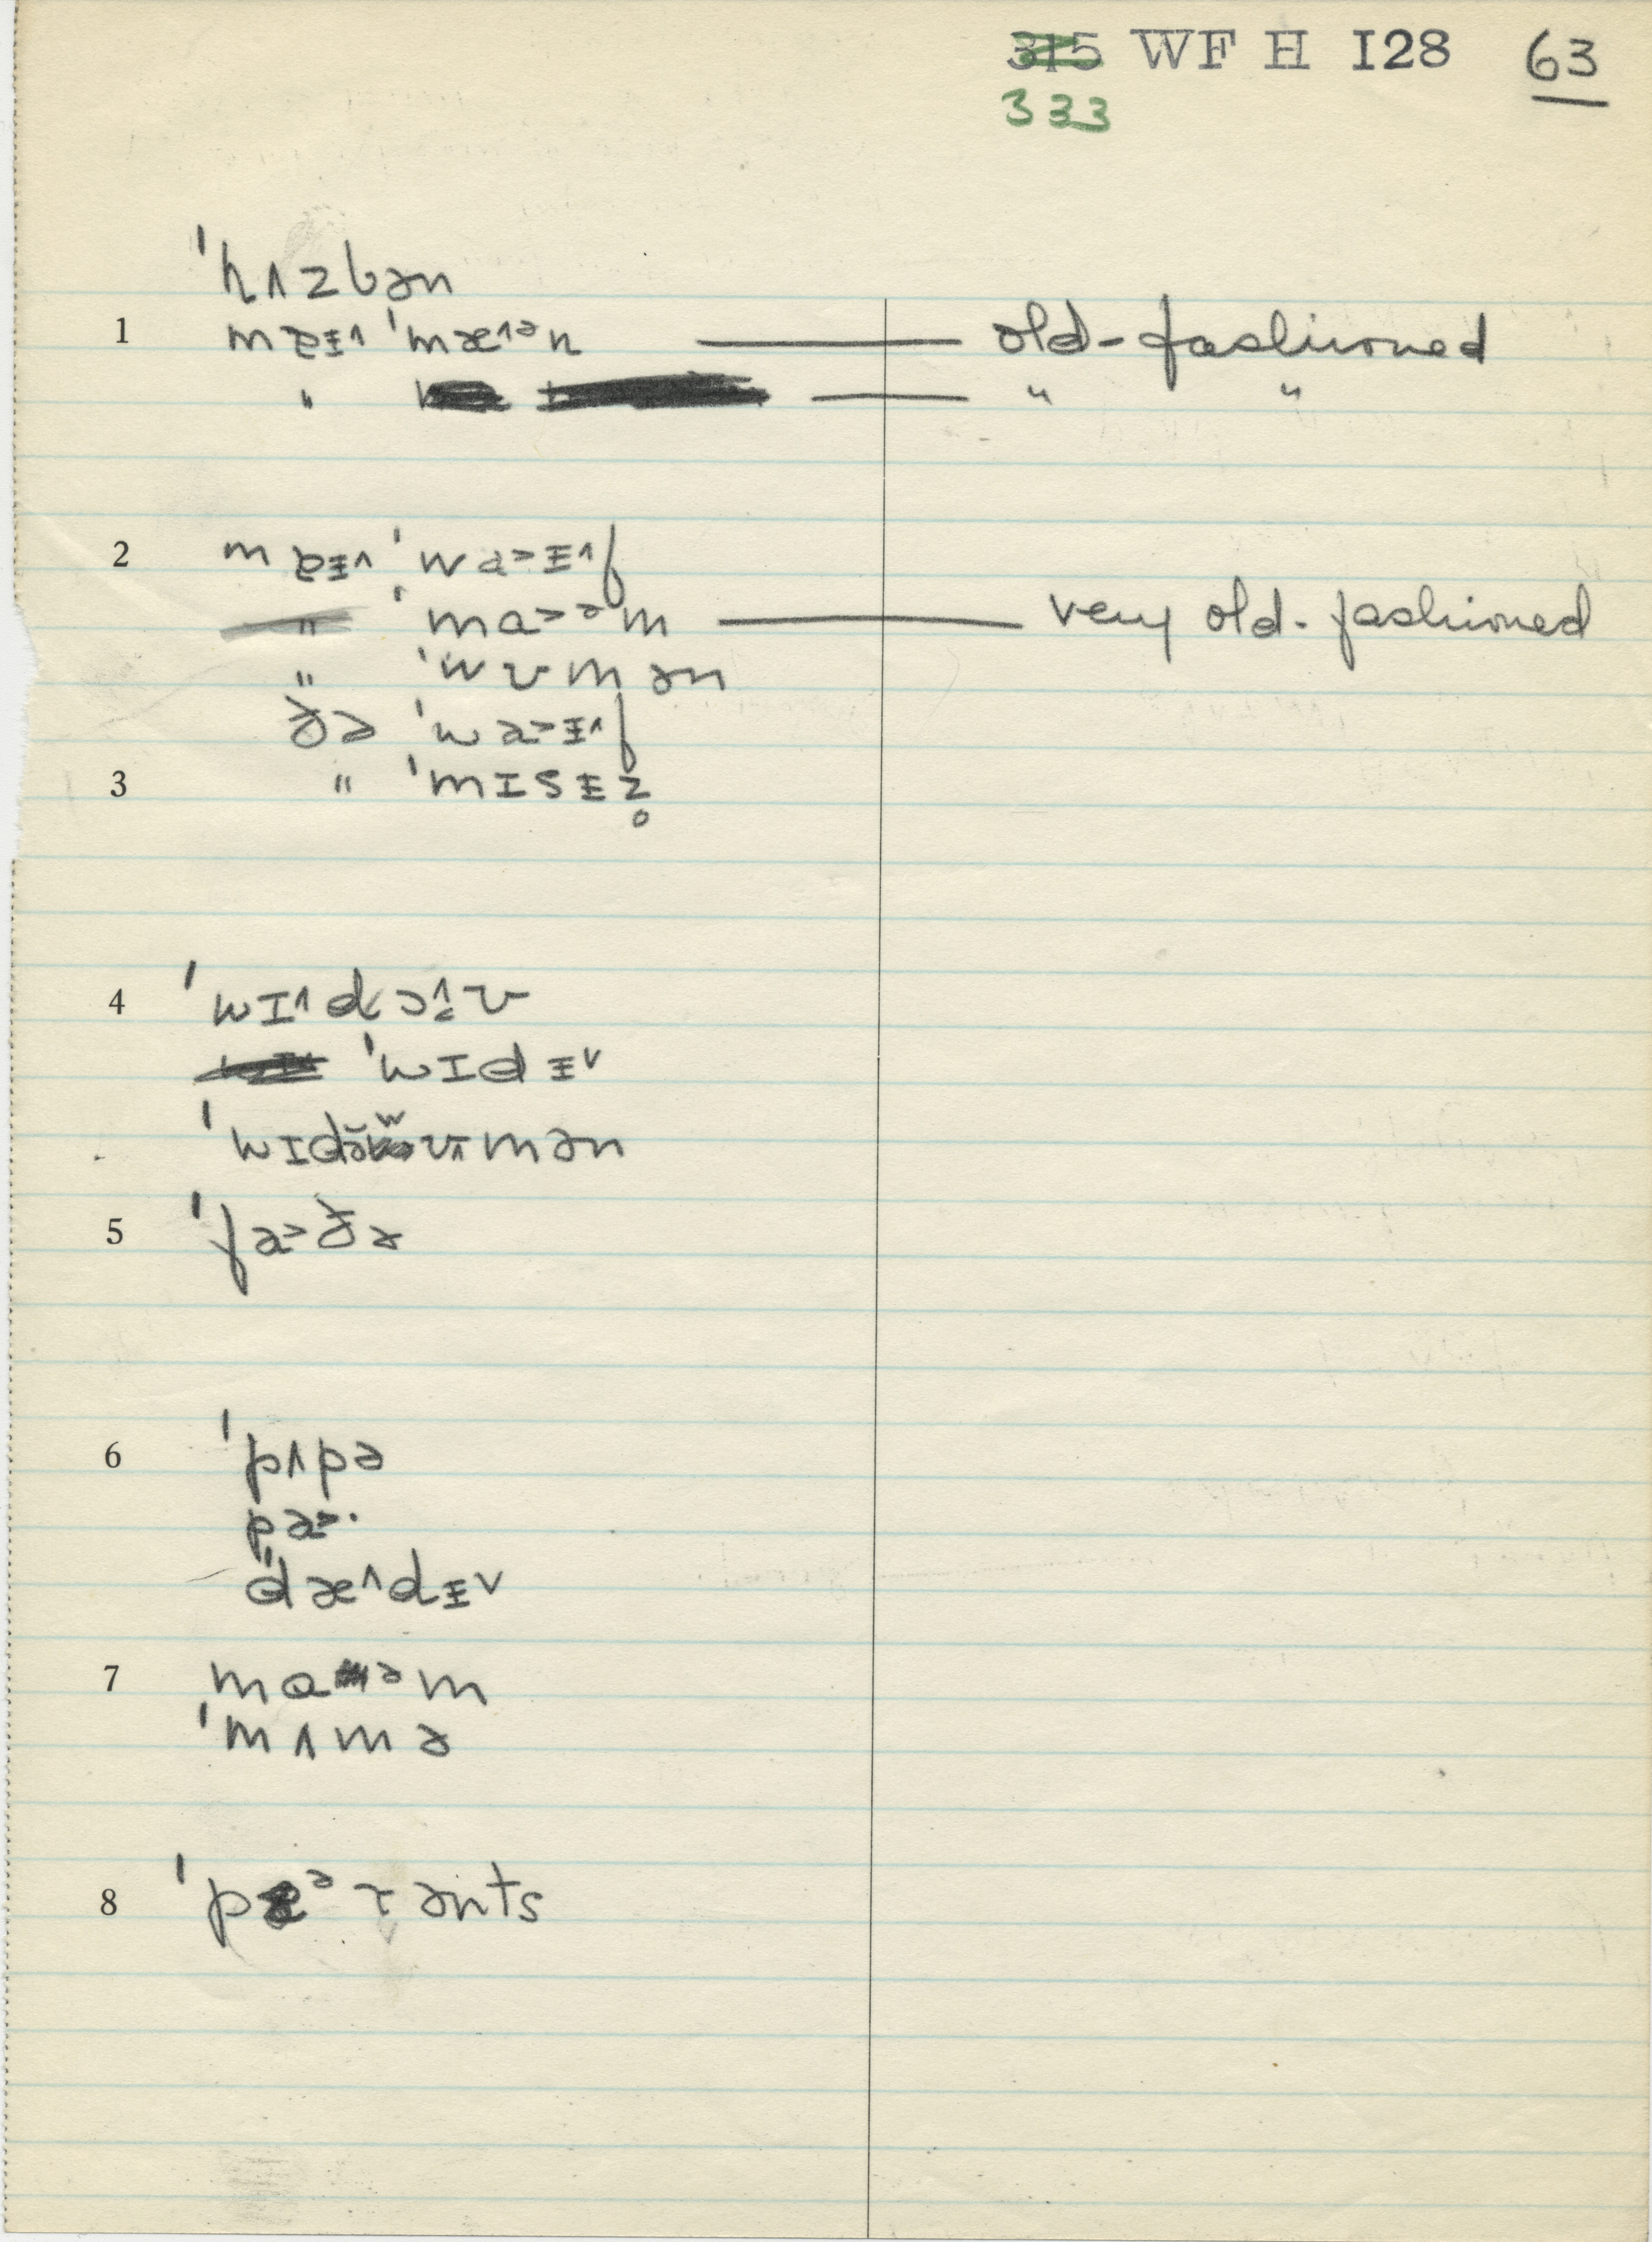 315 WF H I28 63
333
ˈhʌzbən
1 mɐɪ˄ ˈmæ˄ᵊn — old-fashioned
" — " "
2 mɐɪ˄ ˈwa˃ɨ˄f
" ˈma˃ᵊm — very old-fashioned
" ˈwʊmən
ðə ˈwa˃ɨ˄f
3 " ˈmɪsɨz̥
4 ˈwɪ˄dɔ˄ʊ
ˈwɪdɨ˅
ˈwɪdə̆ʷʊmən
5 ˈfa˃ðɚ
6 ˈpʌpə
pa˃·
ˈdæ˄dɨ˅
7 maᵊm
ˈmʌmə
8 ˈpɛᵊrənts